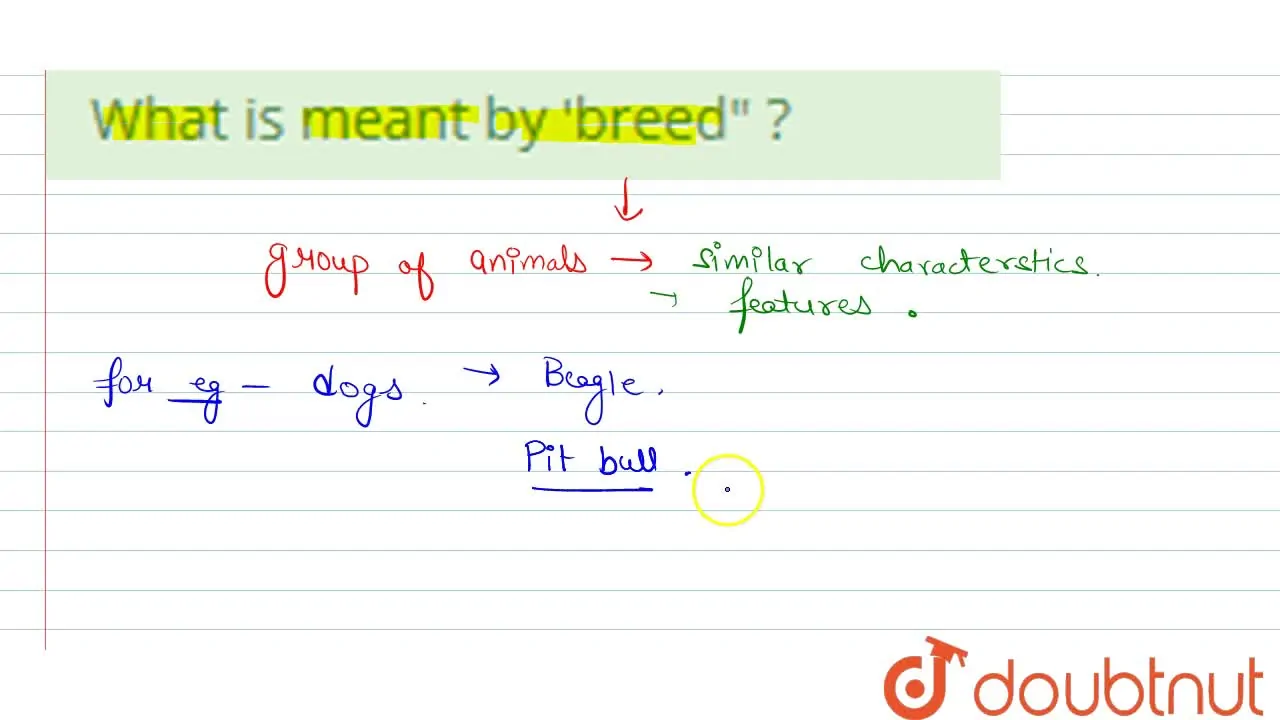 What is meant by 'breed" ?
↓
group of animals → similar characterstics.
→ features .
for eg - dogs. → Beagle.
Pit bull .
doubtnut